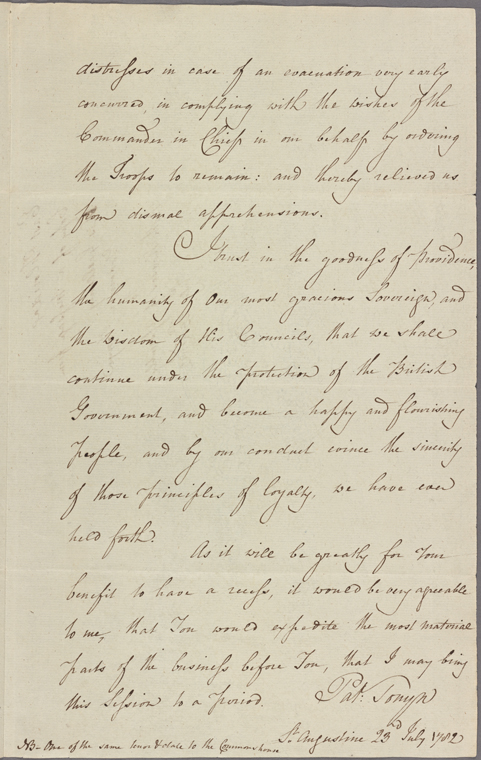 distresses in case of an evacuation very early
concurred, in complying with the wishes of the
Commander in Chief in our behalf by ordering
the Troops to remain: and thereby relieved us
from dismal apprehensions.
I trust in the goodness of Providence,
the humanity of Our most gracious Sovereign, and
the Wisdom of His Councils, that we shall
continue under the protection of the British
Government, and become a happy and flourishing
People, and by our conduct evince the sincerity
of those principles of loyalty, we have ever
held forth.
As it will be greatly for Your
benefit to have a recess, it would be very agreeable
to me, that You would expedite the most material
parts of the business before You, that I may bring
this Session to a Period.
Pat: Tonyn
St. Augustine 23d July 1782
NB- One of the same tenor & date to the Commons house